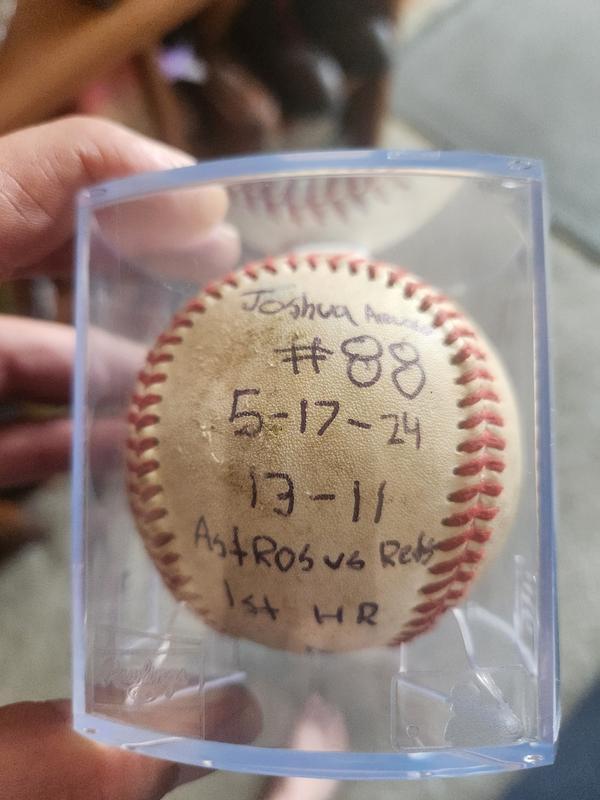 Joshua
#88
5-17-24
13-11
AstROs vs Reds
1st HR